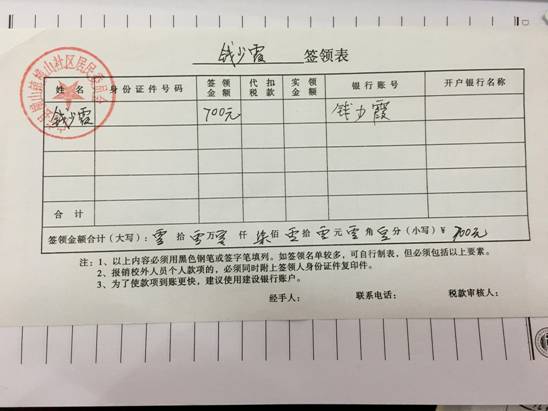 钱少霞 签领表
姓名 身份证件号码 签领金额 代扣税款 实领金额 银行账号 开户银行名称
钱少霞 700元 钱少霞
合计
签领金额合计（大写）：零拾零万零仟柒佰零拾零元零角零分（小写）￥700元
注：1、以上内容必须用黑色钢笔或签字笔填列。如签领名单较多，可自行制表，但必须包括以上要素。
2、报销校外人员个人款项的，必须同时附上签领人身份证件复印件。
3、为了使款项到账更快，建议使用建设银行账户。
经手人： 联系电话： 税款审核人：